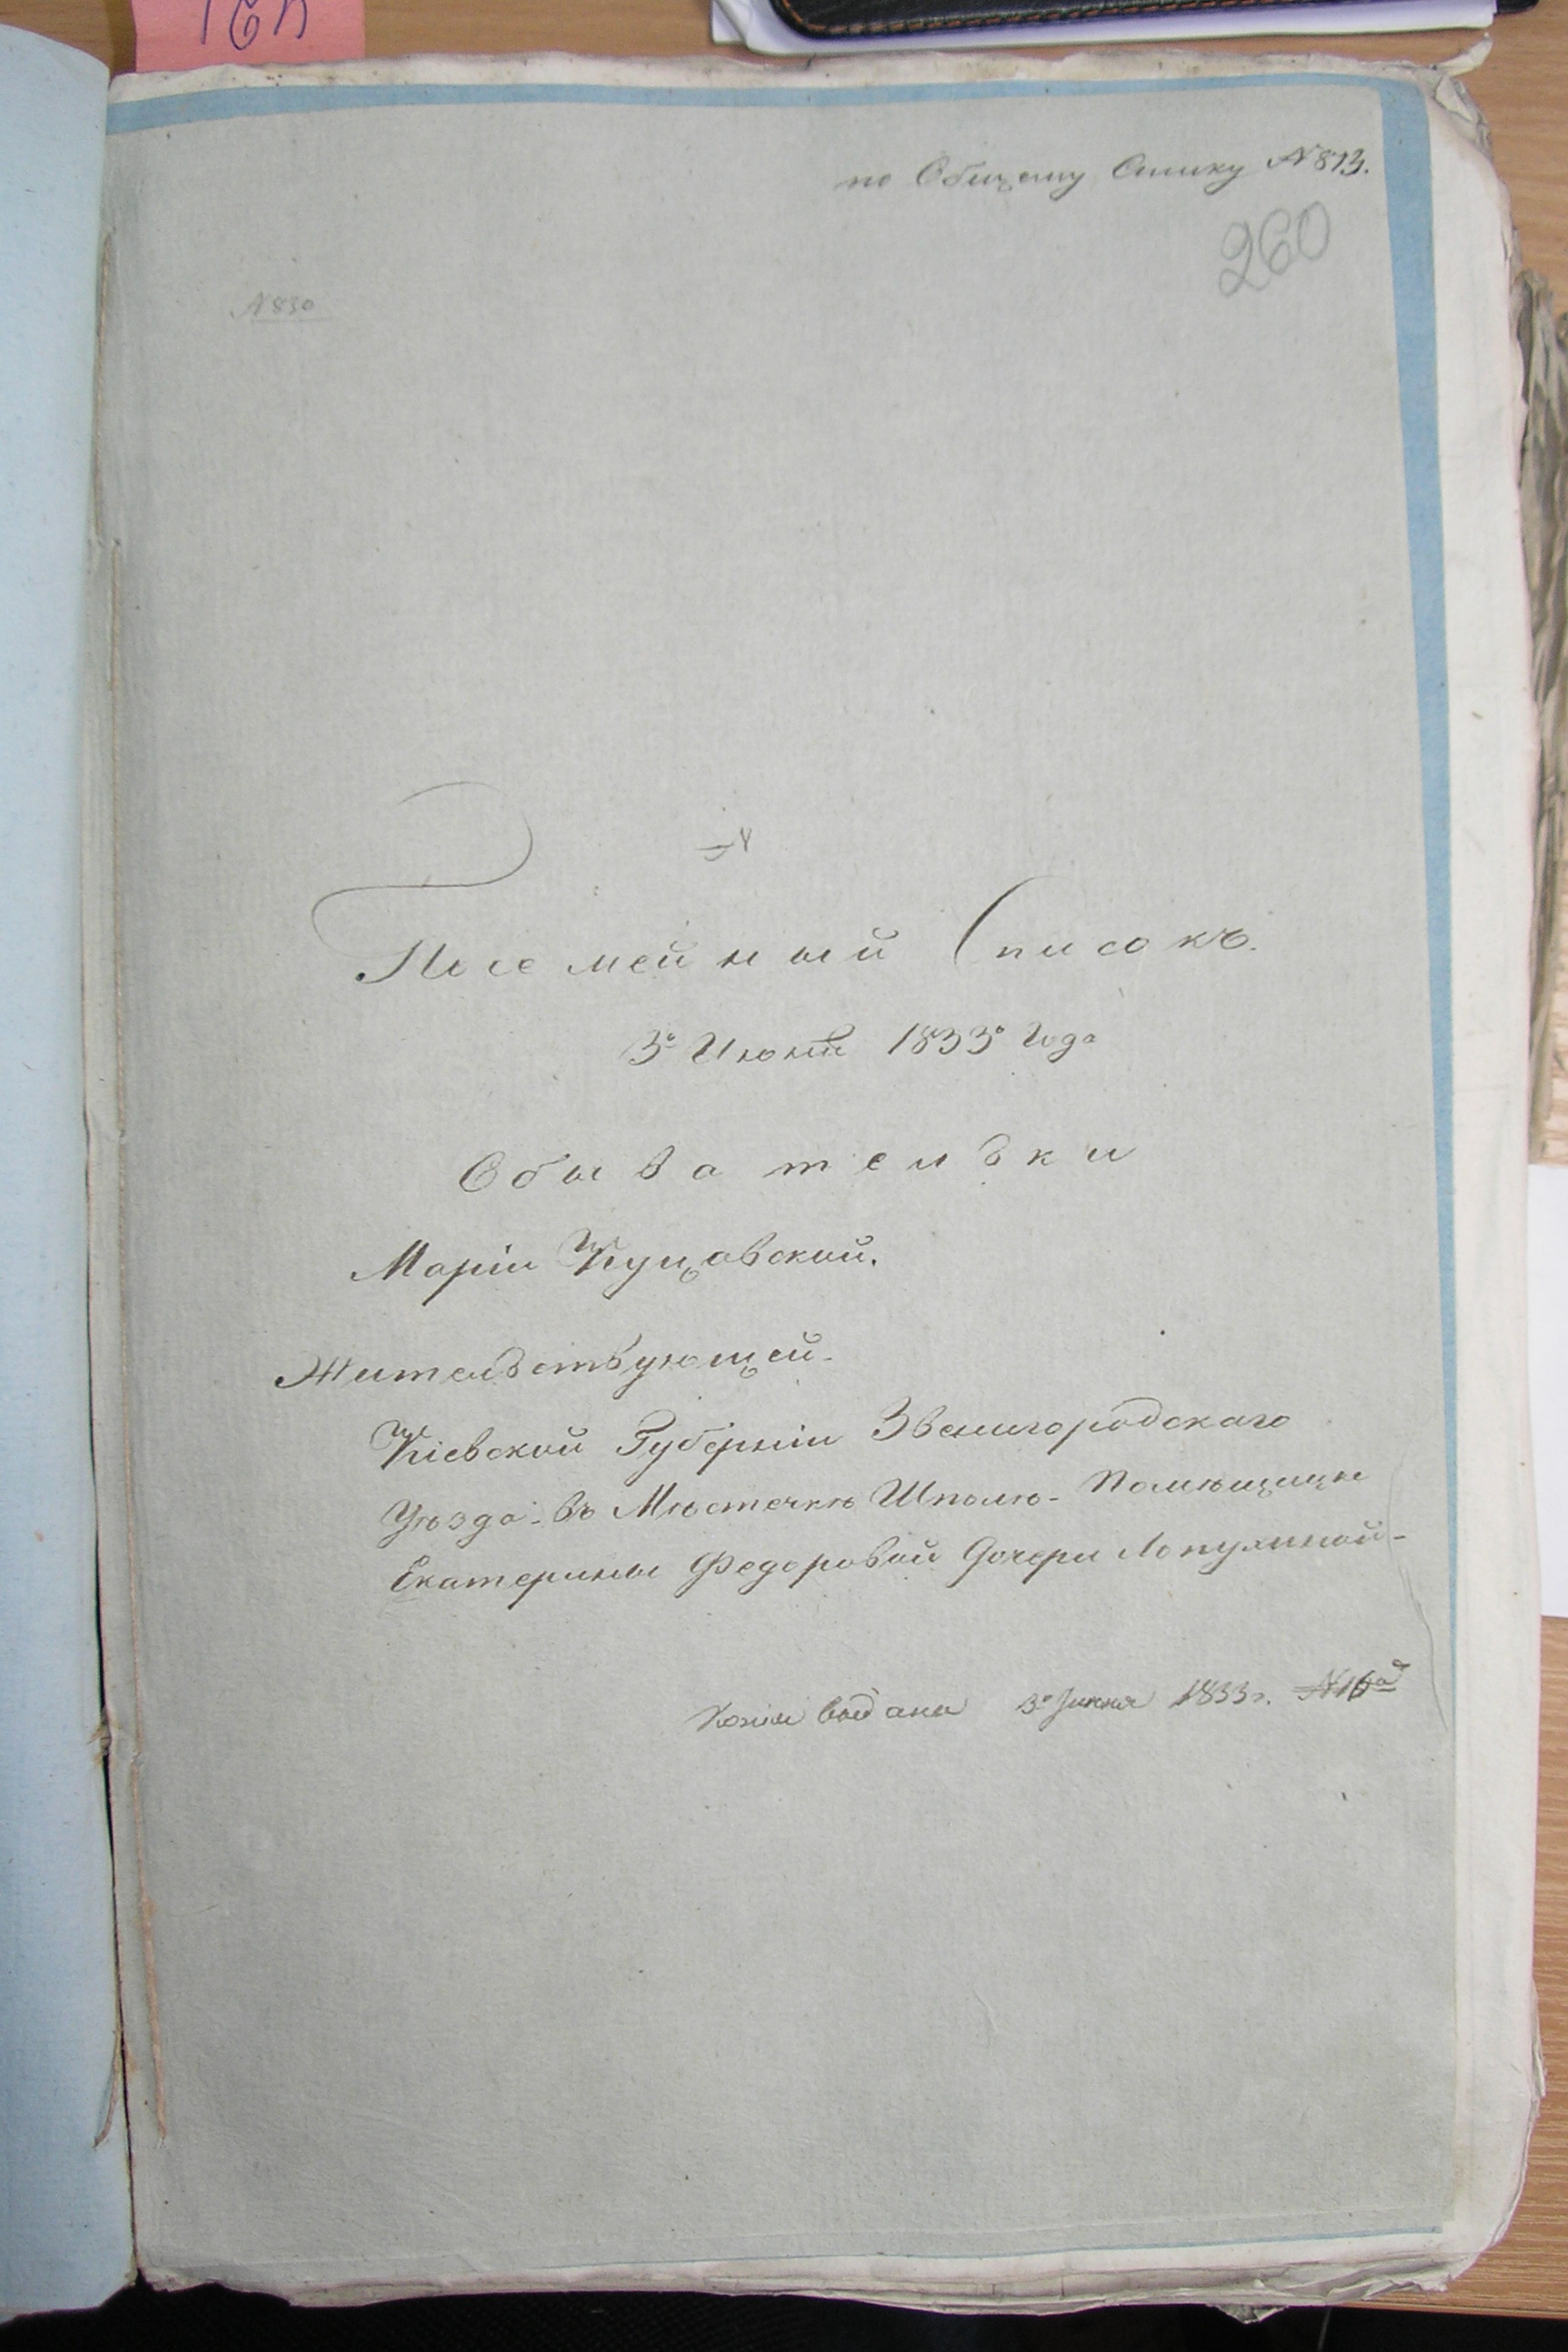 по Общему Списку №813.
260
№830
№
Посемейный Списокъ.
3го Июня 1833го Года
Обывательки
Маріи Куцовской.
Жительствующей
Кіевской Губерніи Звенигородского
Уѣзда въ Мѣстечкѣ Шполѣ Помѣщицы
Екатерины Федоровой Дочери Лопухиной
Копія выдана 3го Іюня 1833г.